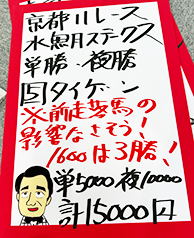 京都11レース
水無月ステークス
単勝・複勝
5タイゲーン
※前走落馬の
影響なさそう!
1600は3勝!
単5000 複10000
計15000円